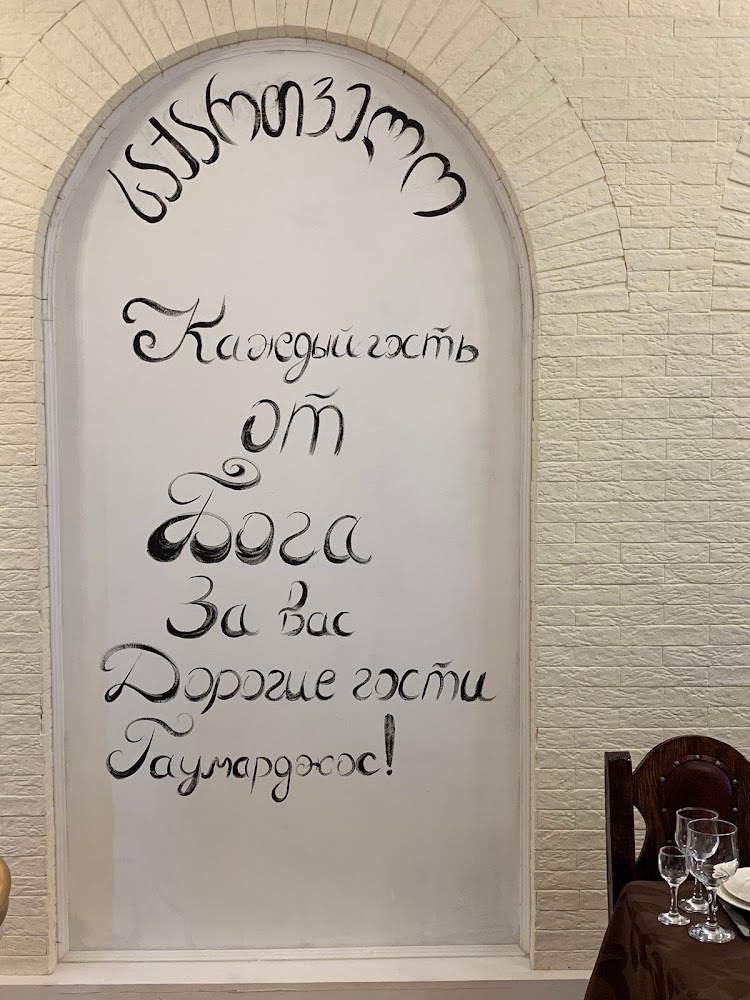 საქართველო
Каждый гость
от
Бога
За вас
Дорогие гости
Гаумарджос!